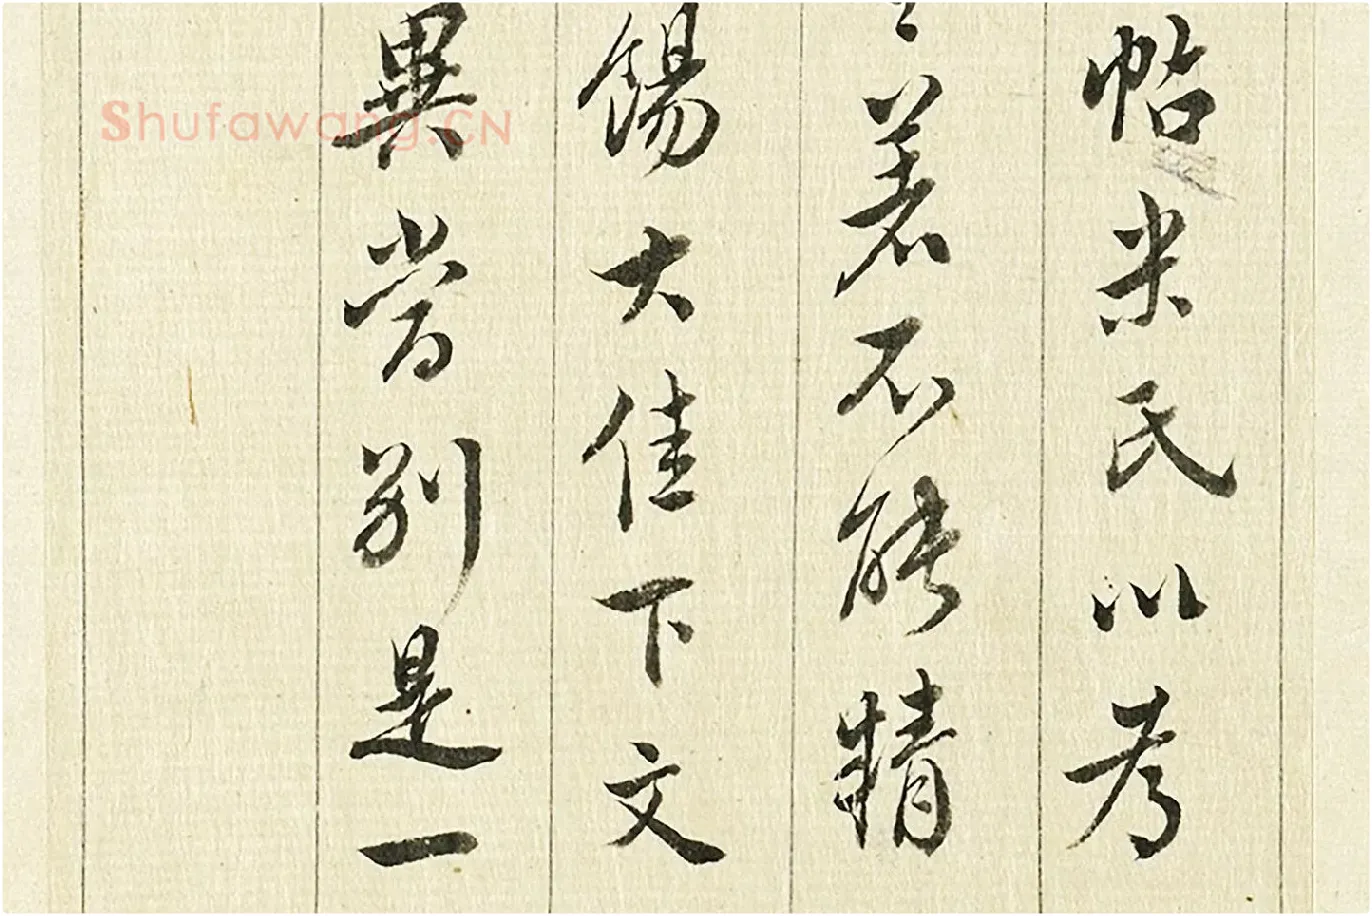 帖米氏以考
著不能精
餳大佳下文
異當別是一
Shufawang.CN